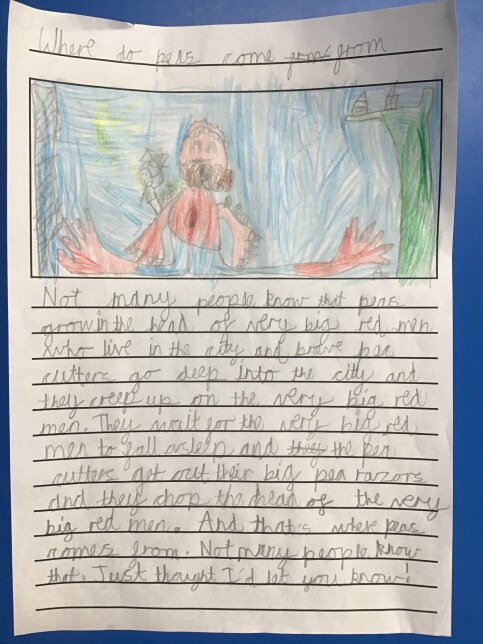 Where do peas come from from
Not many people know that peas
grow in the head of very big red men
who live in the city and brave pea
cutters go deep into the city and
they creep up on the very big red
men. They wait for the very big red
men to fall asleep and they the pea
cutters get out their big pea razors
and they chop the head of the very
big red men. And that's where peas
comes from. Not many people know
that. Just thought I'd let you know!